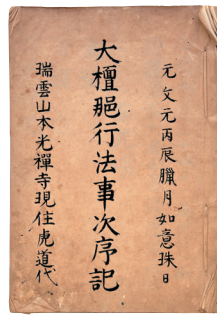 元文元丙辰臘月如意珠日
大檀那行法事次序記
瑞雲山本光禪寺現住虎道代